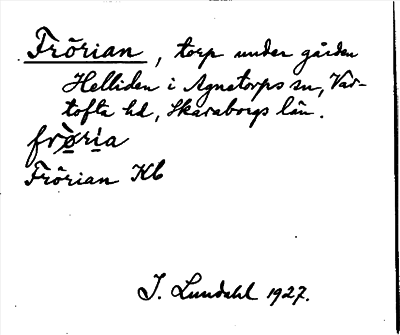 Frörian, torp under gården
Helliden i Agnetorps sn, Var-
tofta hd, Skaraborgs län.
frø̀ria
Frörian Kb
J. Lundahl 1927.